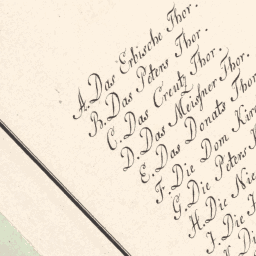 A. Das Erbische Thor.
B. Das Peters Thor.
C. Das Creutz Thor.
D. Das Meisner Thor.
E. Das Donats Thor
F. Die Dom Kir
G. Die Peters K
H. Die Nie
I. Die
Di